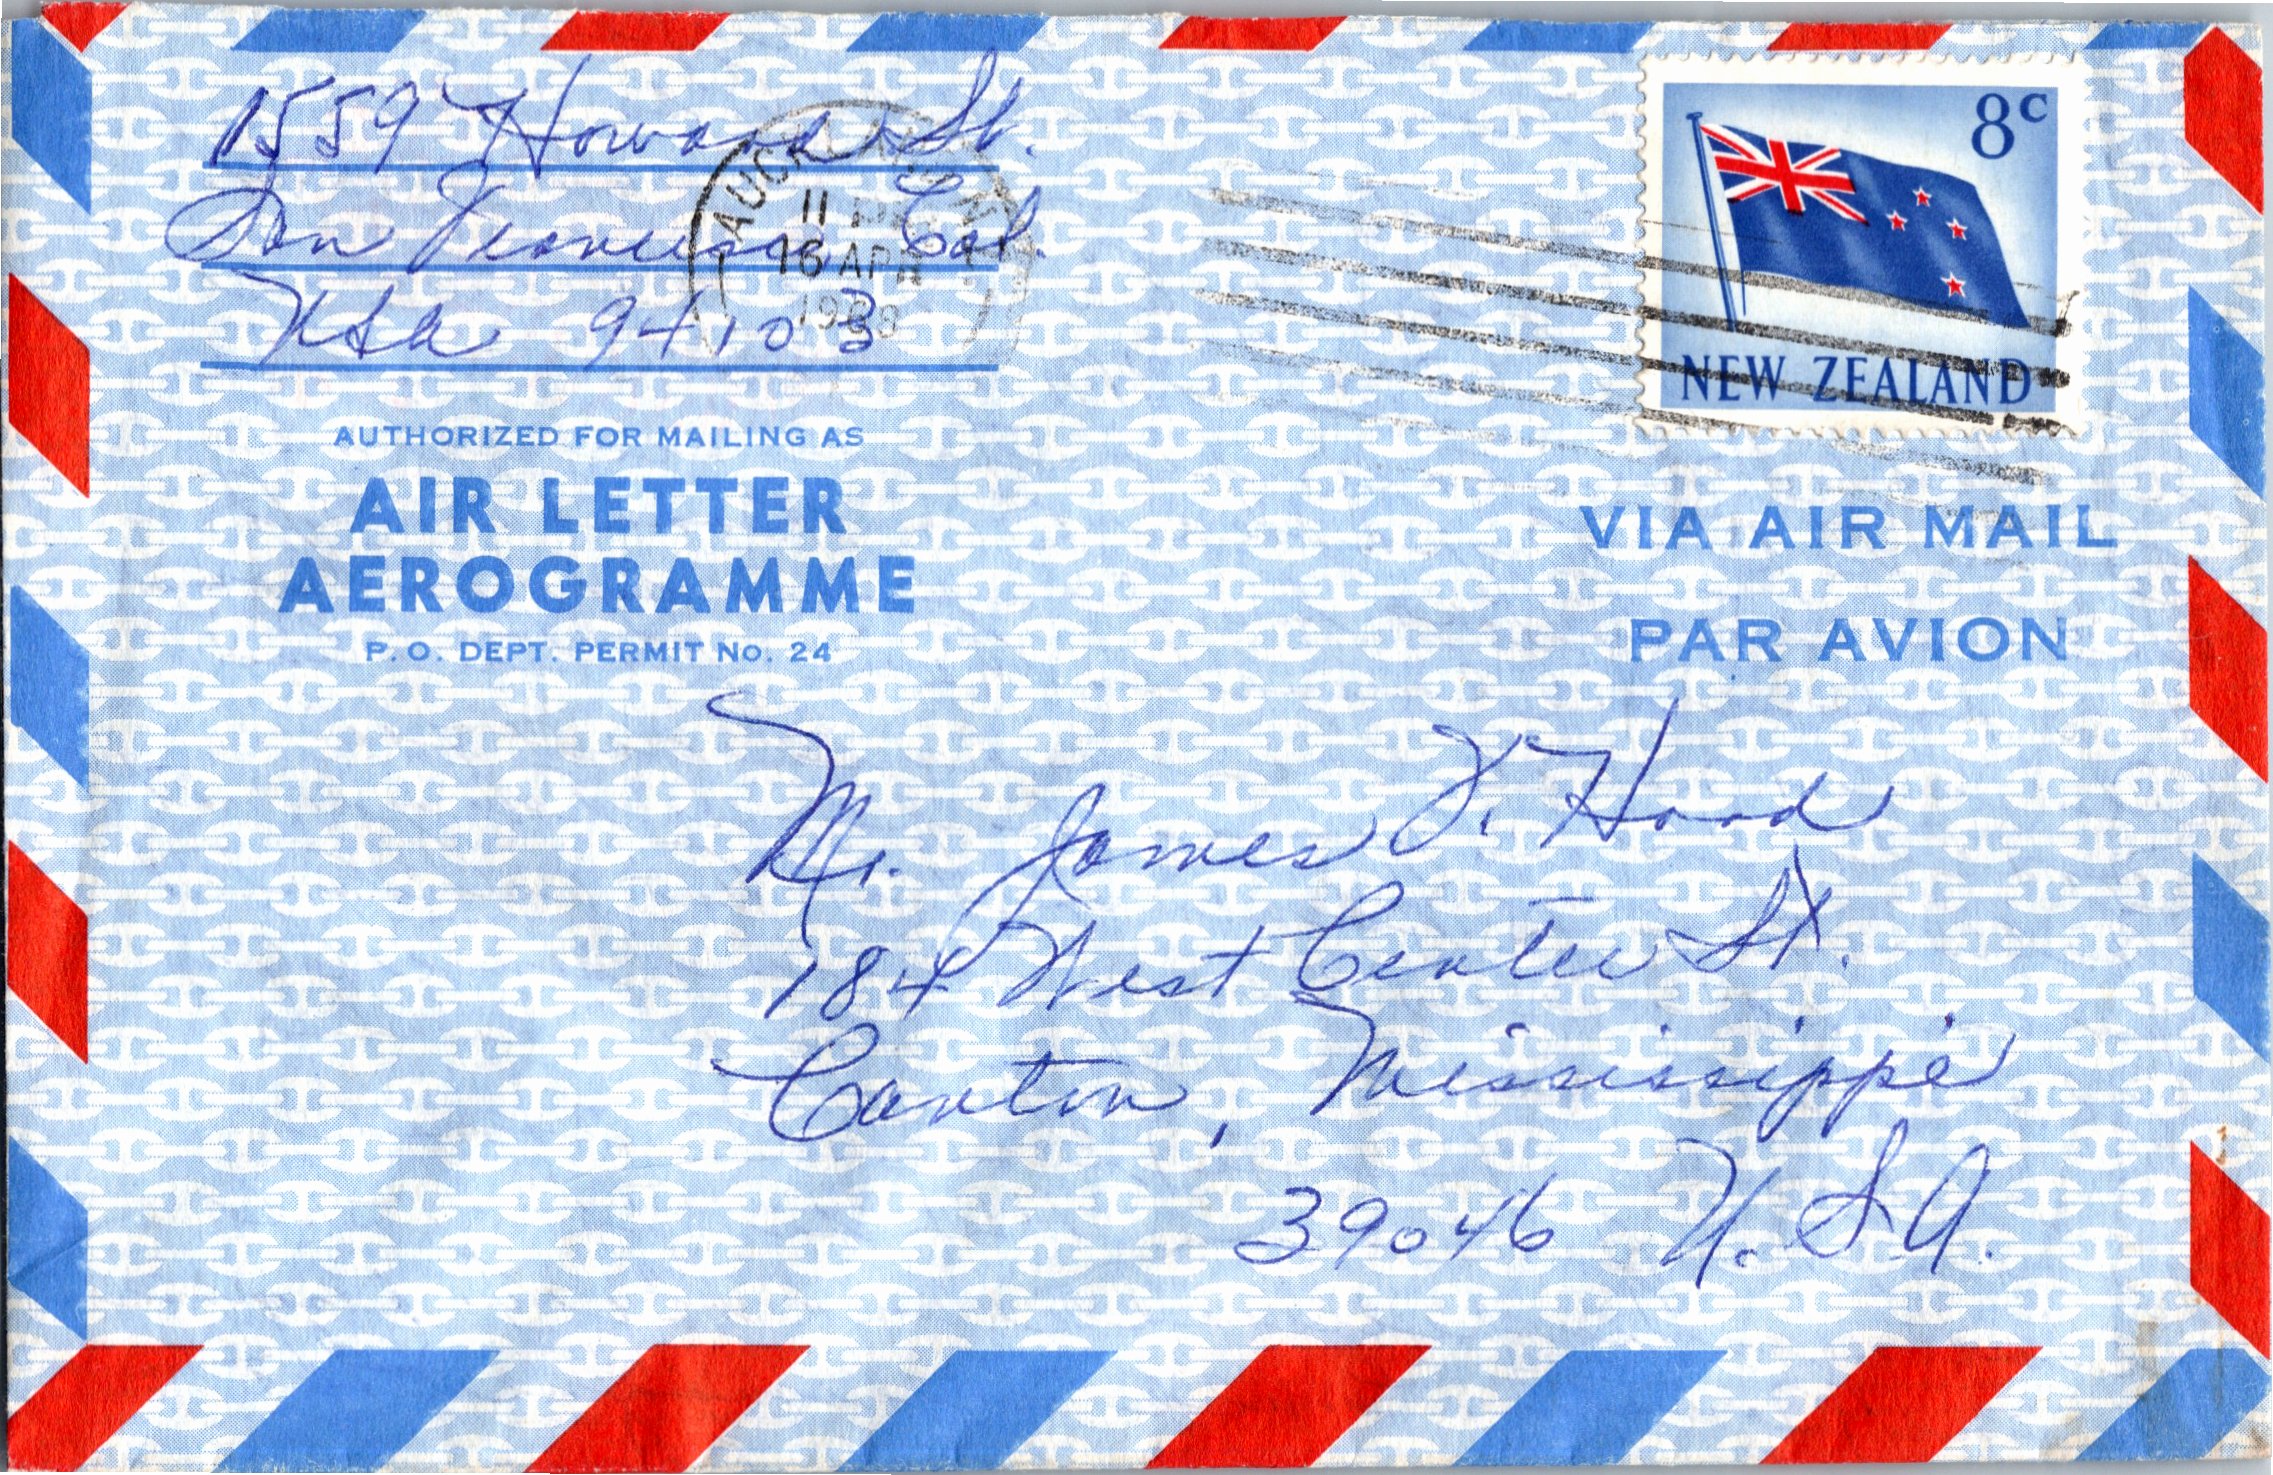 1559 Howard St.
San Francisco Cal.
USA 94103
AUCKLAND
11
16 APR
8c
NEW ZEALAND
AUTHORIZED FOR MAILING AS
AIR LETTER
AEROGRAMME
P. O. DEPT. PERMIT No. 24
VIA AIR MAIL
PAR AVION
Mr. James Hood
184 West Center St.
Canton, Mississippi
39046 U. S A.